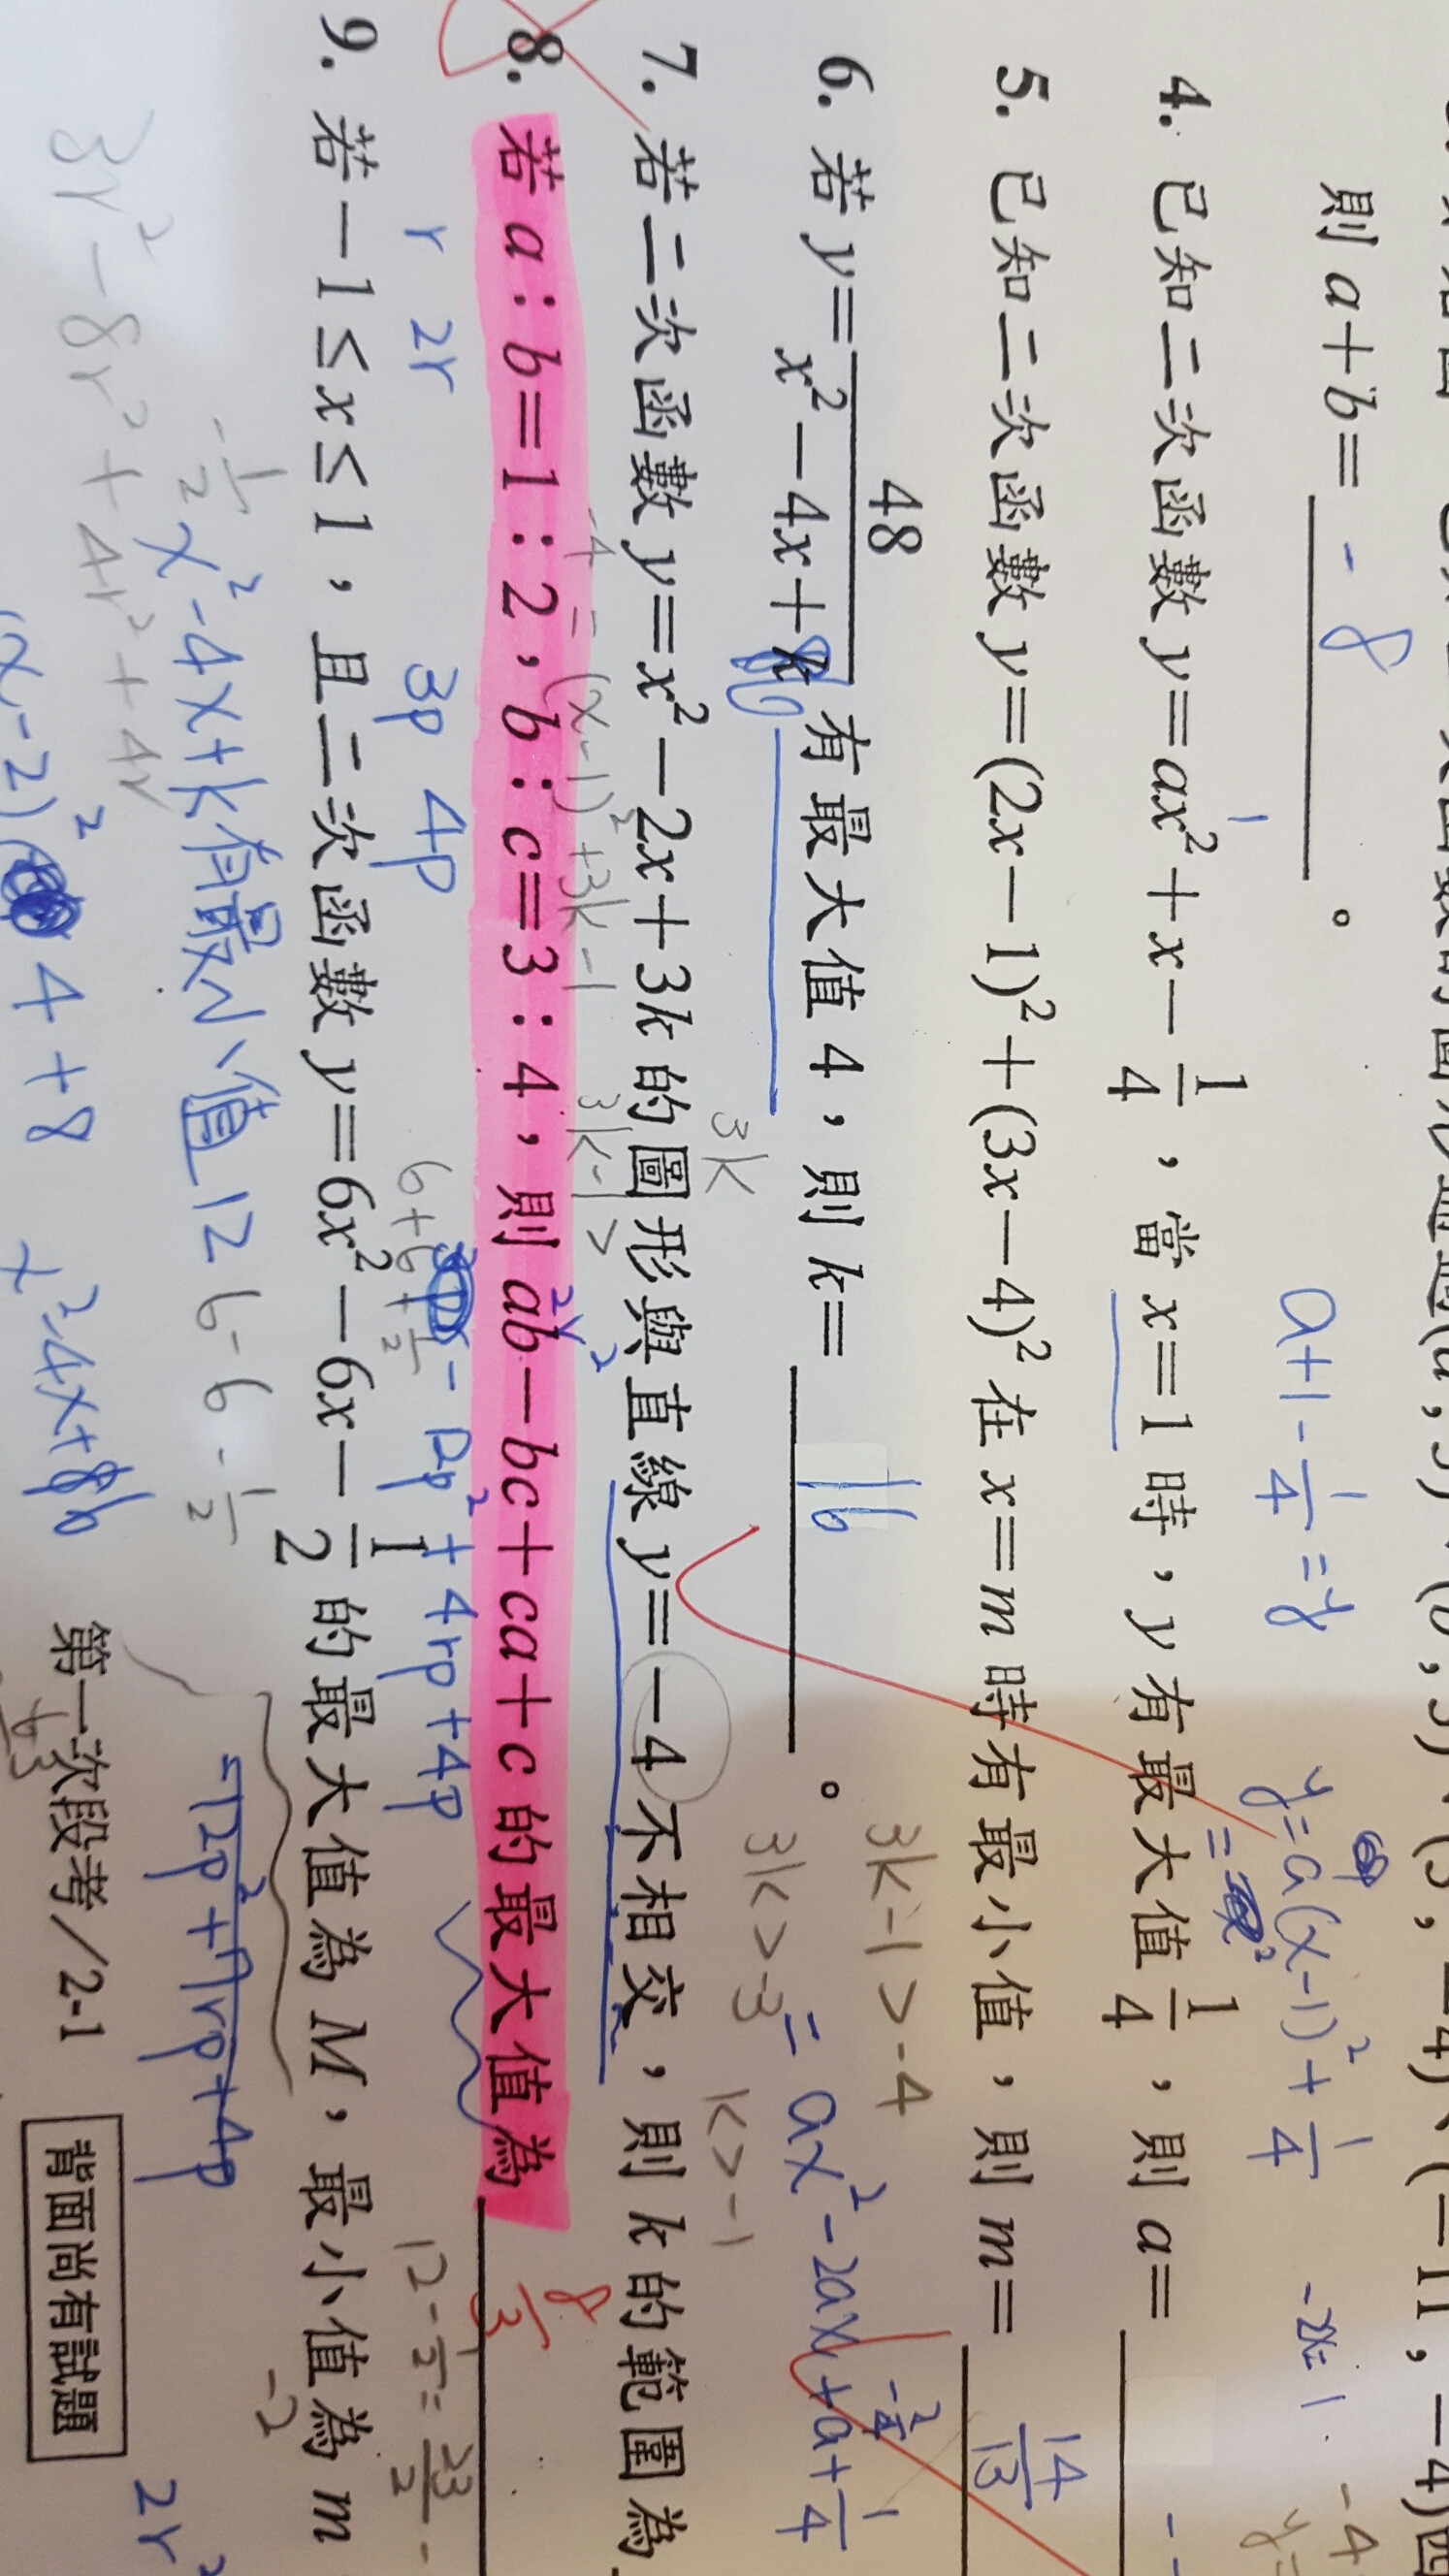 則 a+b= -8 。
a+1-1/4=y
4. 已知二次函數 y=ax²+x-1/4，當 x=1 時，y 有最大值 1/4，則 a=
y=a(x-1)²+1/4
5. 已知二次函數 y=(2x-1)²+(3x-4)² 在 x=m 時有最小值，則 m= 14/13
6. 若 y=48/(x²-4x+k) 有最大值 4，則 k= 16 。
3k-1>-4
3k>-3
k>-1
=ax²-2ax+a+1/4
7. 若二次函數 y=x²-2x+3k 的圖形與直線 y=-4 不相交，則 k 的範圍為
-4=(x-1)²+3k-1
3k-1>
8. 若 a：b=1：2，b：c=3：4，則 ab-bc+ca+c 的最大值為 8/3
r 2r 3p 4p
-12p²+4rp+4p
12-1/2=23/2
9. 若 -1≤x≤1，且二次函數 y=6x²-6x-1/2 的最大值為 M，最小值為 m
-2
x²-4x+k有最小值12
6-6-1/2
3r²-8r²+4r²+4r
(x-2)²
4+8
x²-4x+
第一次段考/2-1
背面尚有試題
2r²